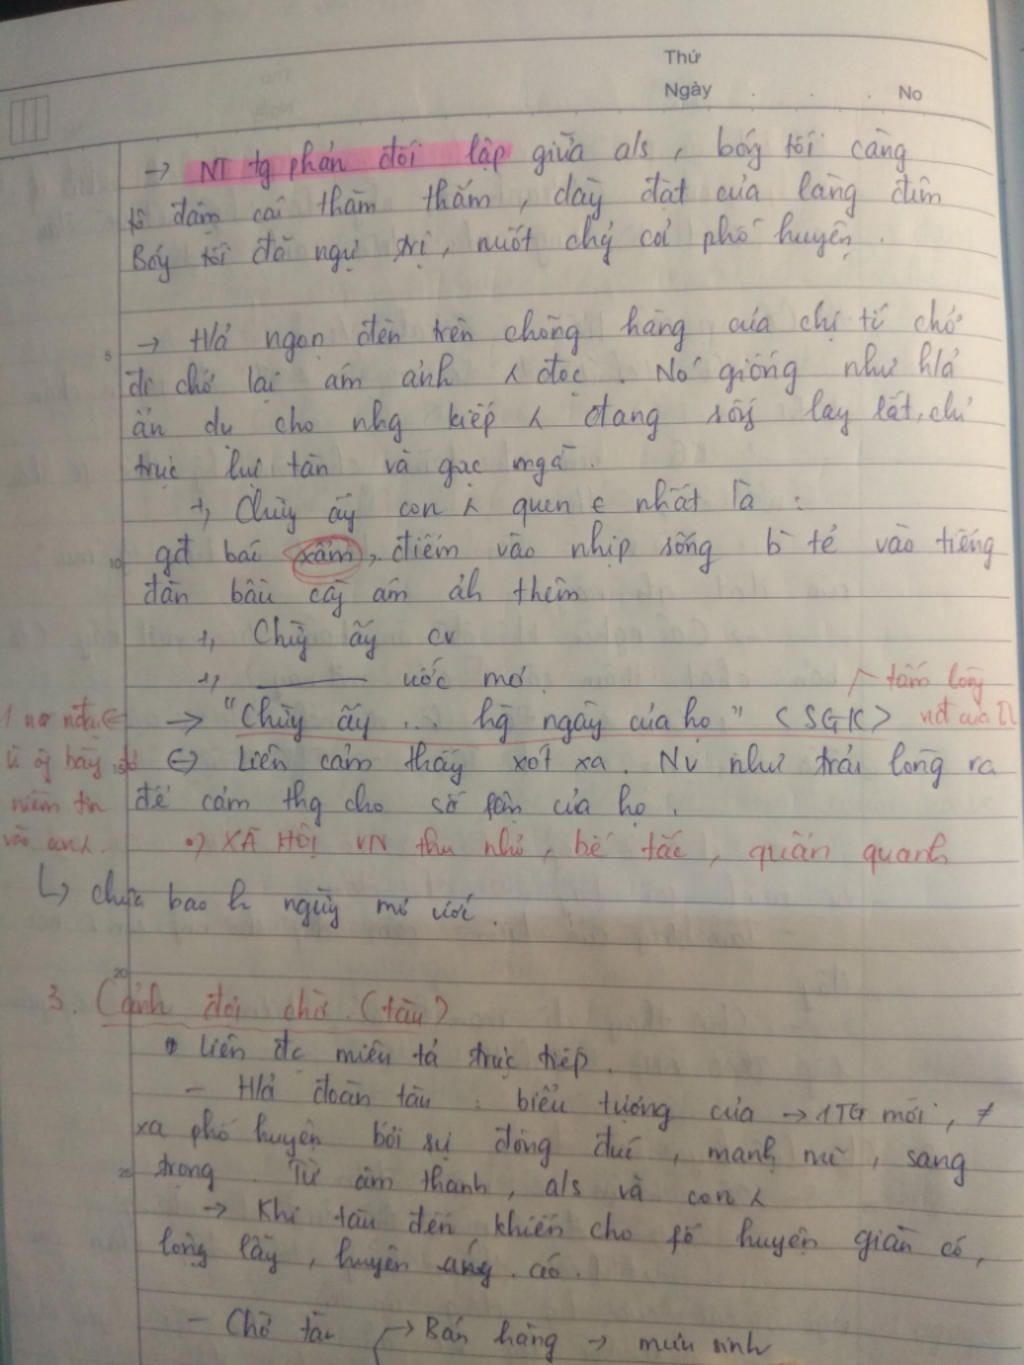 Thứ
Ngày . . . No
→ NT tg phản đối lập giữa a/s, bóg tối càng
tô đậm cái thăm thẳm, dày đặt của làng đêm
Bóg tối đã ngự trị, nuốt chửg cả phố huyện.
5 → H/ả ngọn đèn trên chõng hàng của chị tí chở
đc chở lại ám ảnh đọc. Nó giống như h/ả
ẩn dụ cho nhg kiếp đang sốg lay lắt, chỉ
trực lụi tàn và gục ngã.
+, Chừg ấy con quen nhất là :
10 gđ bác xẩm, điểm vào nhịp sống tẻ vào tiếng
đàn bầu càg ảm thêm
+, Chừg ấy cv
+, ——— ước mơ.
tấm lòg
→ "Chừg ấy ... hg ngày của họ" <SGK>
Liên cảm thấy xót xa. Nv như trải lòng ra
niềm tin
để cảm thg cho số fận của họ.
vào
XÃ HỘI VN thu nhỏ, bế tắc, quẩn quanh
↳ chưa bao h ngừg mơ ước.
20
3. Cảnh đợi chờ (tàu)
Liên đc miêu tả trực tiếp.
- H/ả đoàn tàu : biểu tượng của → 1TG mới, ≠
xa phố huyện bởi sự đông đúc, mạnh mẽ, sang
25 trọng. Từ âm thanh, a/s và con
→ Khi tàu đến khiến cho fố huyện giàn có,
lòng lẫy, huyên
- Chờ tàu → Bán hàng → mưu sinh